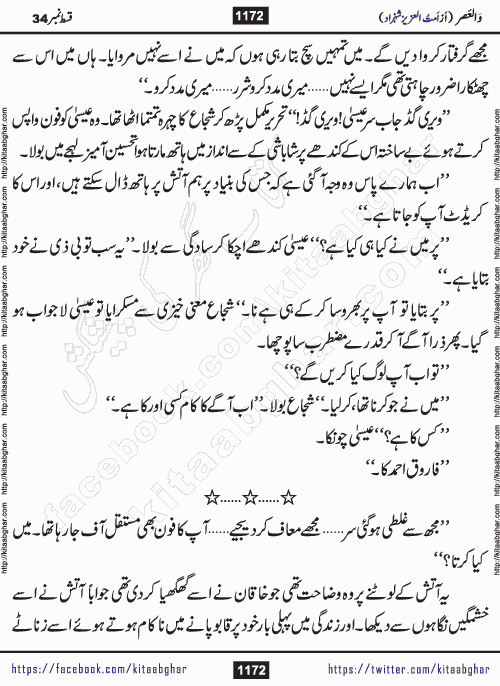 وَالعَصر (از اَمتُ العزیز شہزاد)
1172
قسط نمبر34
مجھے گرفتار کروا دیں گے۔ میں تمہیں سچ بتا رہی ہوں کہ میں نے اسے نہیں مروایا۔ ہاں میں اس سے
چھٹکارا ضرور چاہتی تھی مگر ایسے نہیں......میری مدد کرو شرر......میری مدد کرو۔‘‘
’’ویری گڈ جاب سر عیسیٰ! ویری گڈ!‘‘ تحریر مکمل پڑھ کر شجاع کا چہرہ تمتما اٹھا تھا۔ وہ عیسیٰ کو فون واپس
کرتے ہوئے بے ساختہ اس کے کندھے پر شاباشی کے سے انداز میں ہاتھ مارتا ہوا تحسین آمیز لہجے میں بولا۔
’’اب ہمارے پاس وہ وجہ آ گئی ہے کہ جس کی بنیاد پر ہم آتش پر ہاتھ ڈال سکتے ہیں، اور اس کا
کریڈٹ آپ کو جاتا ہے۔‘‘
’’پر میں نے کیا ہی کیا ہے؟‘‘ عیسیٰ کندھے اچکا کر سادگی سے بولا۔ ’’یہ سب تو بی ڈی نے خود
بتایا ہے۔‘‘
’’پر بتایا تو آپ پر بھروسا کر کے ہی ہے نا۔‘‘ شجاع معنی خیزی سے مسکرایا تو عیسیٰ لاجواب ہو
گیا۔ پھر ذرا آگے آ کر قدرے مضطرب سا پوچھا۔
’’تو اب آپ لوگ کیا کریں گے؟‘‘
’’میں نے جو کرنا تھا، کر لیا۔‘‘ شجاع بولا۔ ’’اب آگے کا کام کسی اور کا ہے۔‘‘
’’کس کا ہے؟‘‘ عیسیٰ چونکا۔
’’فاروق احمد کا۔‘‘
☆......☆......☆
’’مجھ سے غلطی ہو گئی سر......مجھے معاف کر دیجیے......آپ کا فون بھی مستقل آف جا رہا تھا۔ میں
کیا کرتا؟‘‘
یہ آتش کے لوٹنے پر وہ وضاحت تھی جو خاقان نے اسے گھگھیا کر دی تھی جواباً آتش نے اسے
خشمگیں نگاہوں سے دیکھا۔ اور زندگی میں پہلی بار خود پر قابو پانے میں ناکام ہوتے ہوئے اسے زناٹے
https://facebook.com/kitaabghar
1172
https://twitter.com/kitaabghar
http://kitaabghar.com http://kitaabghar.com http://kitaabghar.com http://kitaabghar.com http://kitaabghar.com
http://kitaabghar.com http://kitaabghar.com http://kitaabghar.com http://kitaabghar.com http://kitaabghar.com
kitaabghar.com
facebook.com/kitaabghar